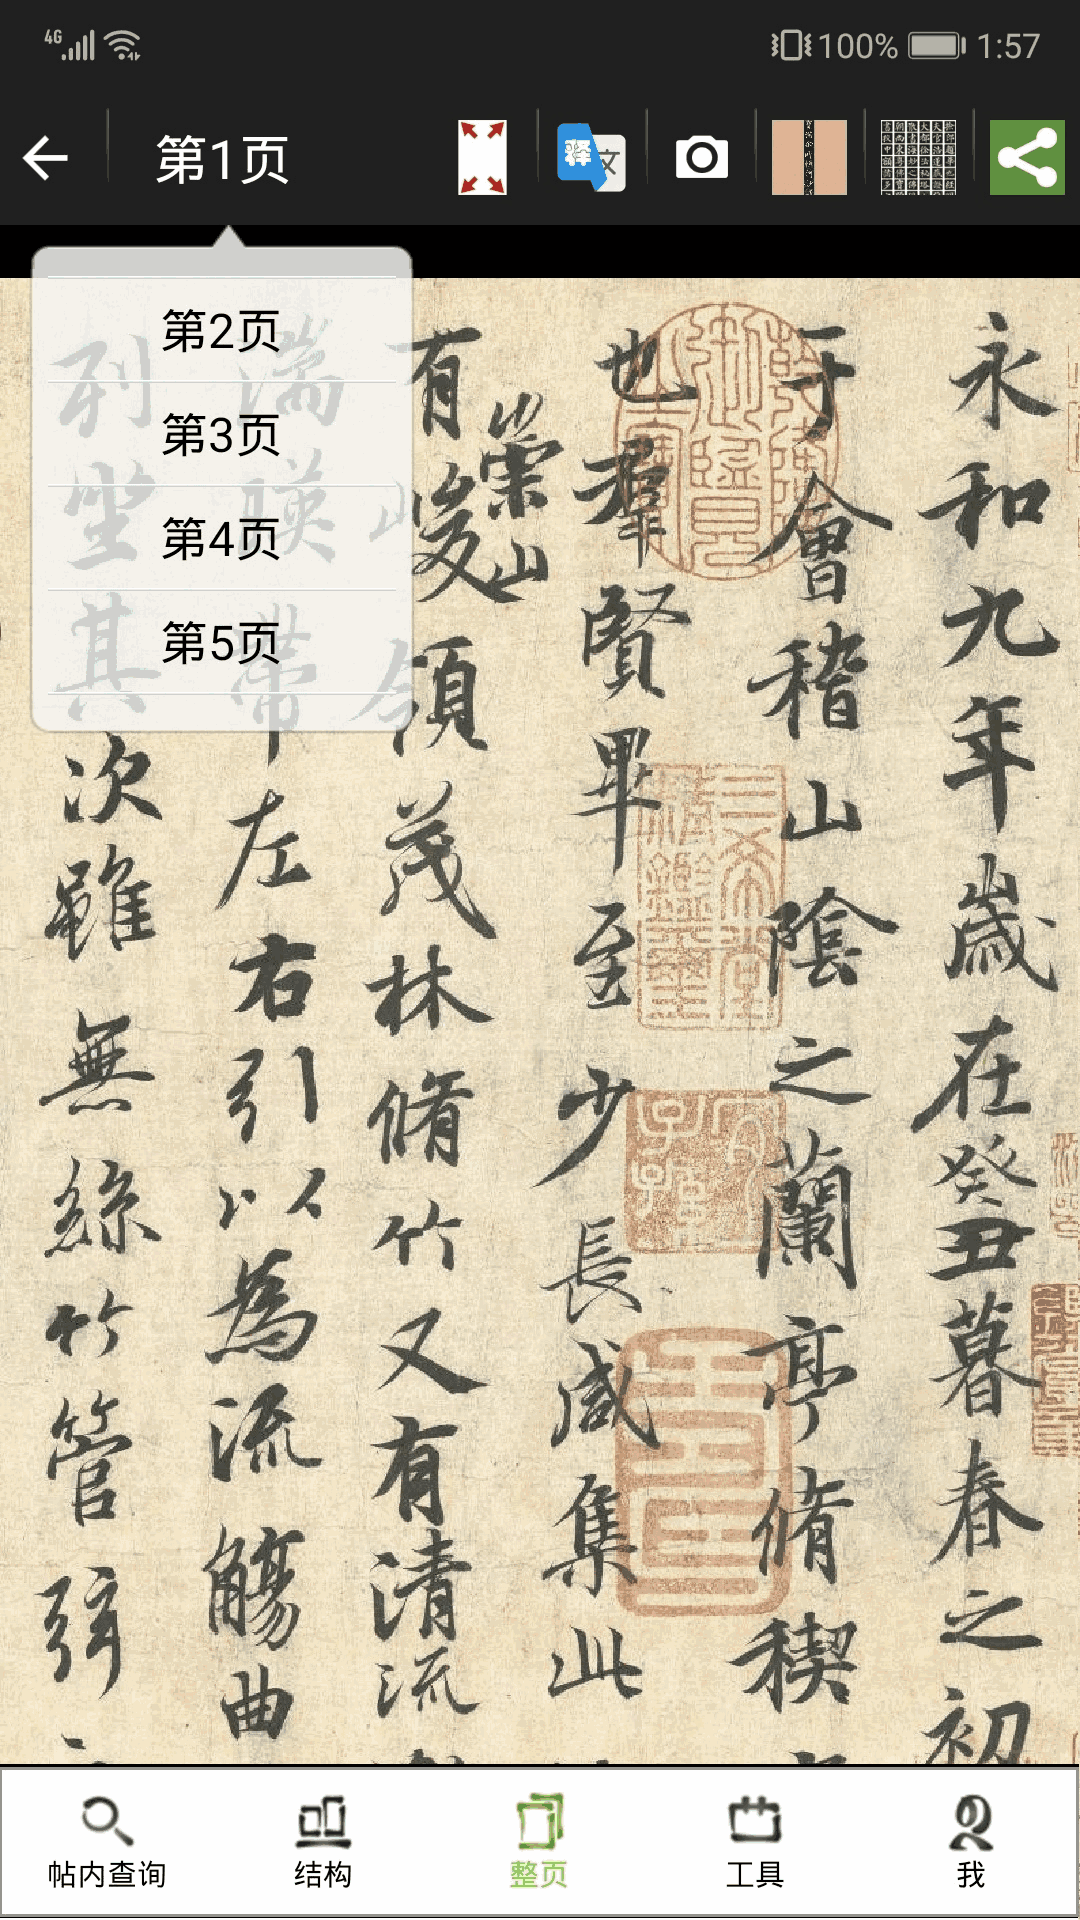 4G 100% 1:57
第1页
释 文
第2页
第3页
第4页
第5页
永和九年歲在癸丑暮春之初
于會稽山陰之蘭亭脩稧
也羣賢畢至少長咸集此
有崇山峻領茂林脩竹又有清流
湍暎帶左右引以為流觴曲
列坐其次雖無絲竹管弦
帖内查询
结构
整页
工具
我